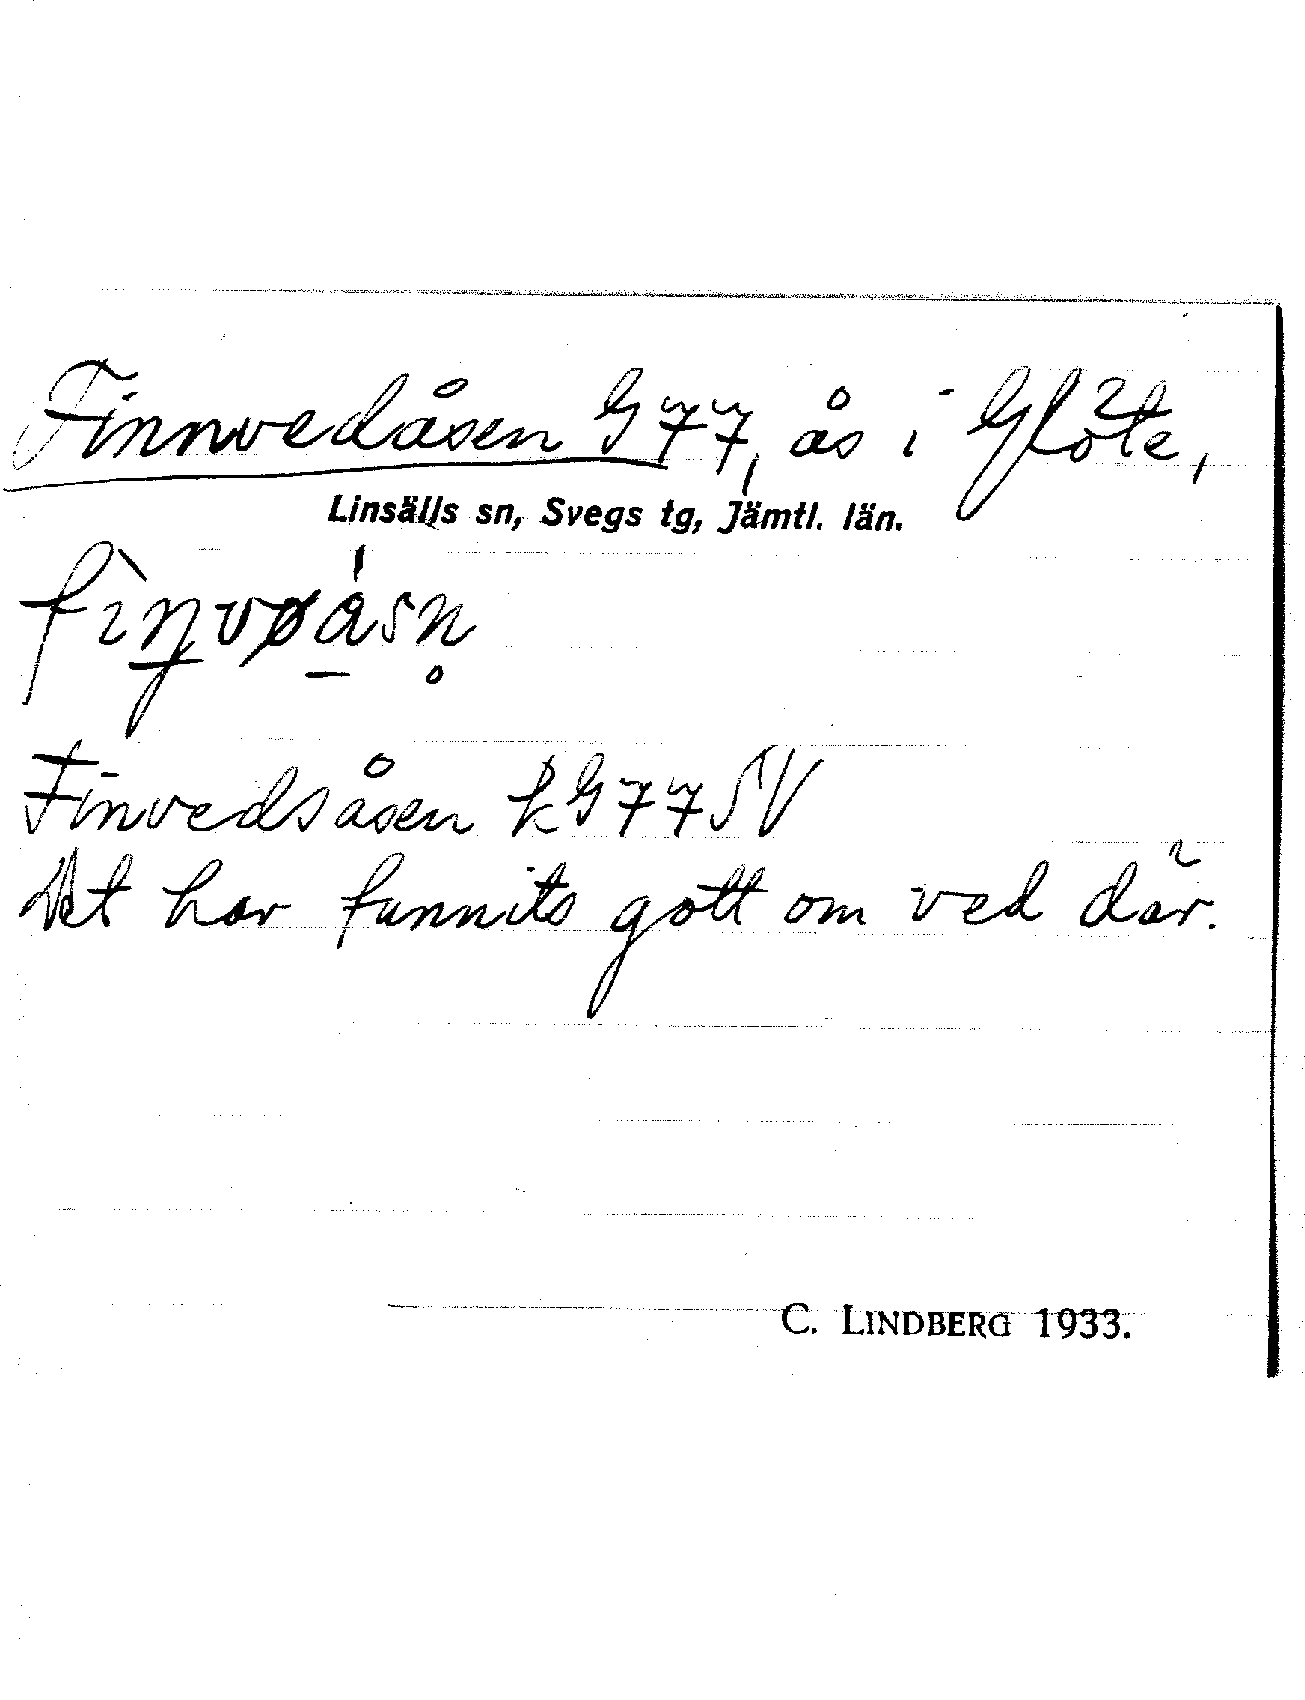 Finnvedåsen G 77, ås i Glöte,
Linsälls sn, Svegs tg, Jämtl. län.
Finvedsåsen k G 77 SV
Det har funnits gott om ved där.
C. LINDBERG 1933.